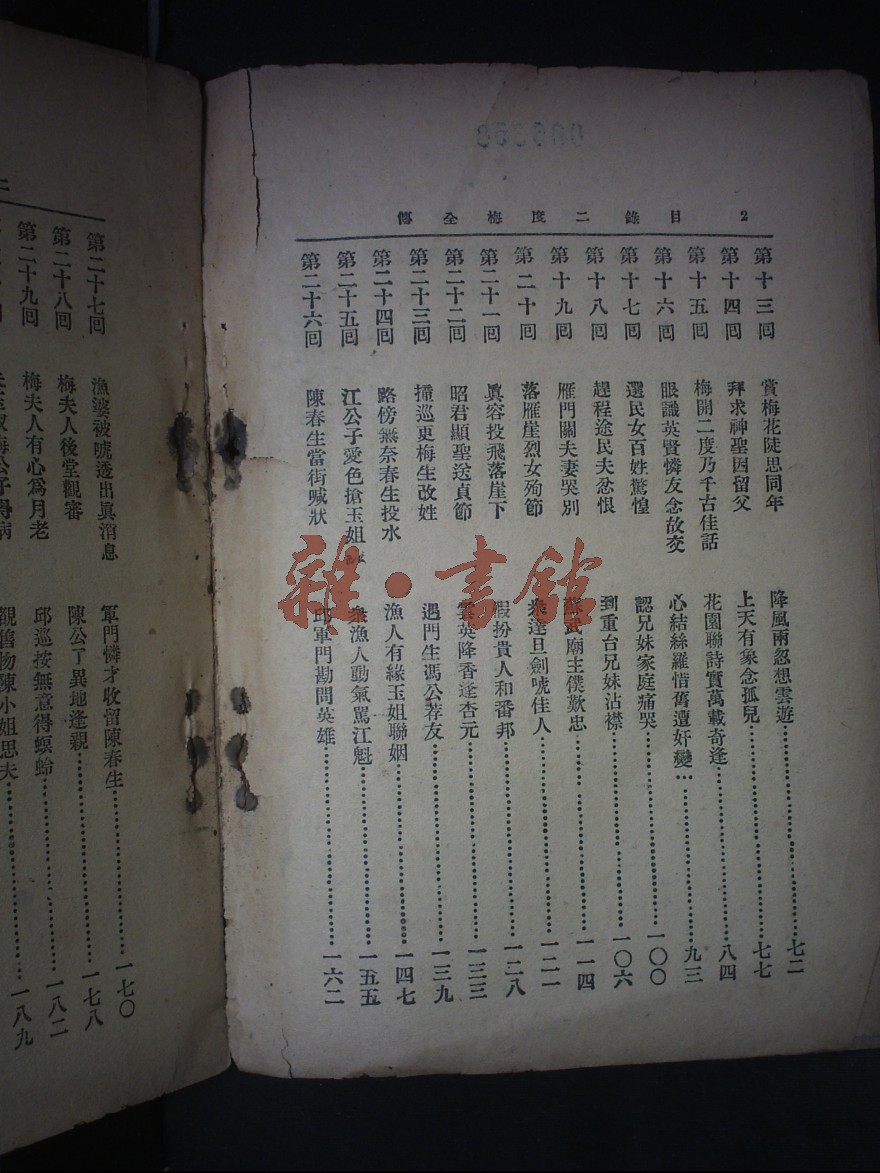 2 目錄 二度梅全傳
第十三回 賞梅花陡思同年 降風雨忽想雲遊 七二
第十四回 拜求神聖因留父 上天有象念孤兒 七七
第十五回 梅開二度乃千古佳話 花園聯詩實萬載奇逢 八四
第十六回 眼識英賢憐友念故交 心結絲羅惜舊遭奸變 九三
第十七回 選民女百姓驚惶 認兄妹家庭痛哭 一〇〇
第十八回 趕程途民夫忿恨 到重台兄妹沾襟 一〇六
第十九回 雁門關夫妻哭別 蘇武廟主僕歎忠 一一四
第二十回 落雁崖烈女殉節 衆達旦劍唬佳人 一二一
第二十一回 眞容投飛落崖下 假扮貴人和番邦 一二八
第二十二回 昭君顯聖送貞節 雲英降香逢杏元 一三三
第二十三回 撞巡更梅生改姓 遇門生馮公荐友 一三九
第二十四回 路傍無奈春生投水 漁人有緣玉姐聯姻 一四七
第二十五回 江公子愛色搶玉姐 衆漁人動氣罵江魁 一五五
第二十六回 陳春生當街喊狀 邱軍門勘問英雄 一六二
第二十七回 漁婆被唬透出眞消息 軍門憐才收留陳春生 一七〇
第二十八回 梅夫人後堂觀審 陳公子異地逢親 一七八
第二十九回 梅夫人有心爲月老 邱巡按無意得螟蛉 一八二
覩舊物陳小姐思夫 一八九
雜·書館